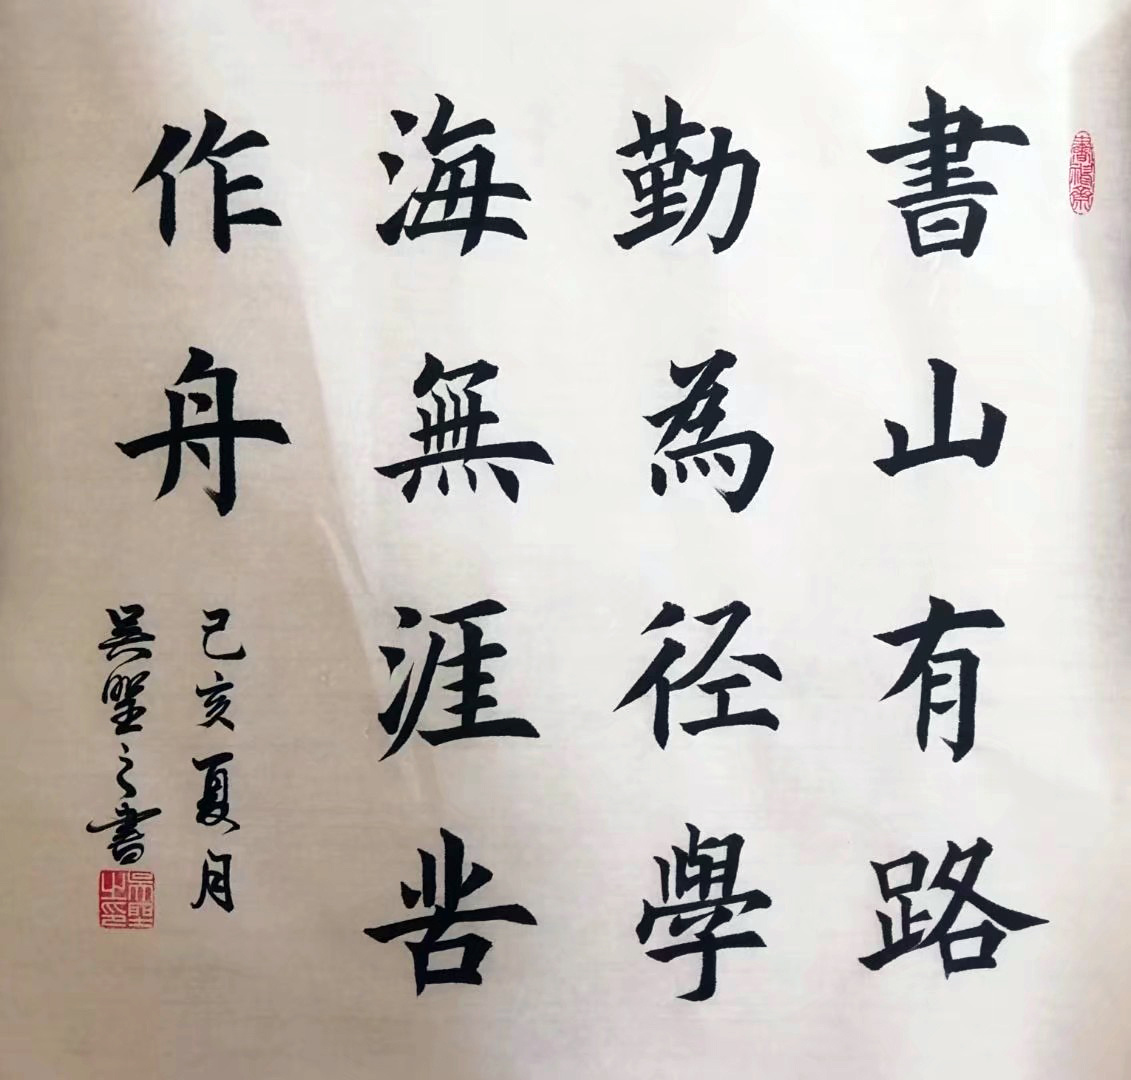 書山有路
勤為径學
海無涯苦
作舟
己亥夏月
吴聖之書